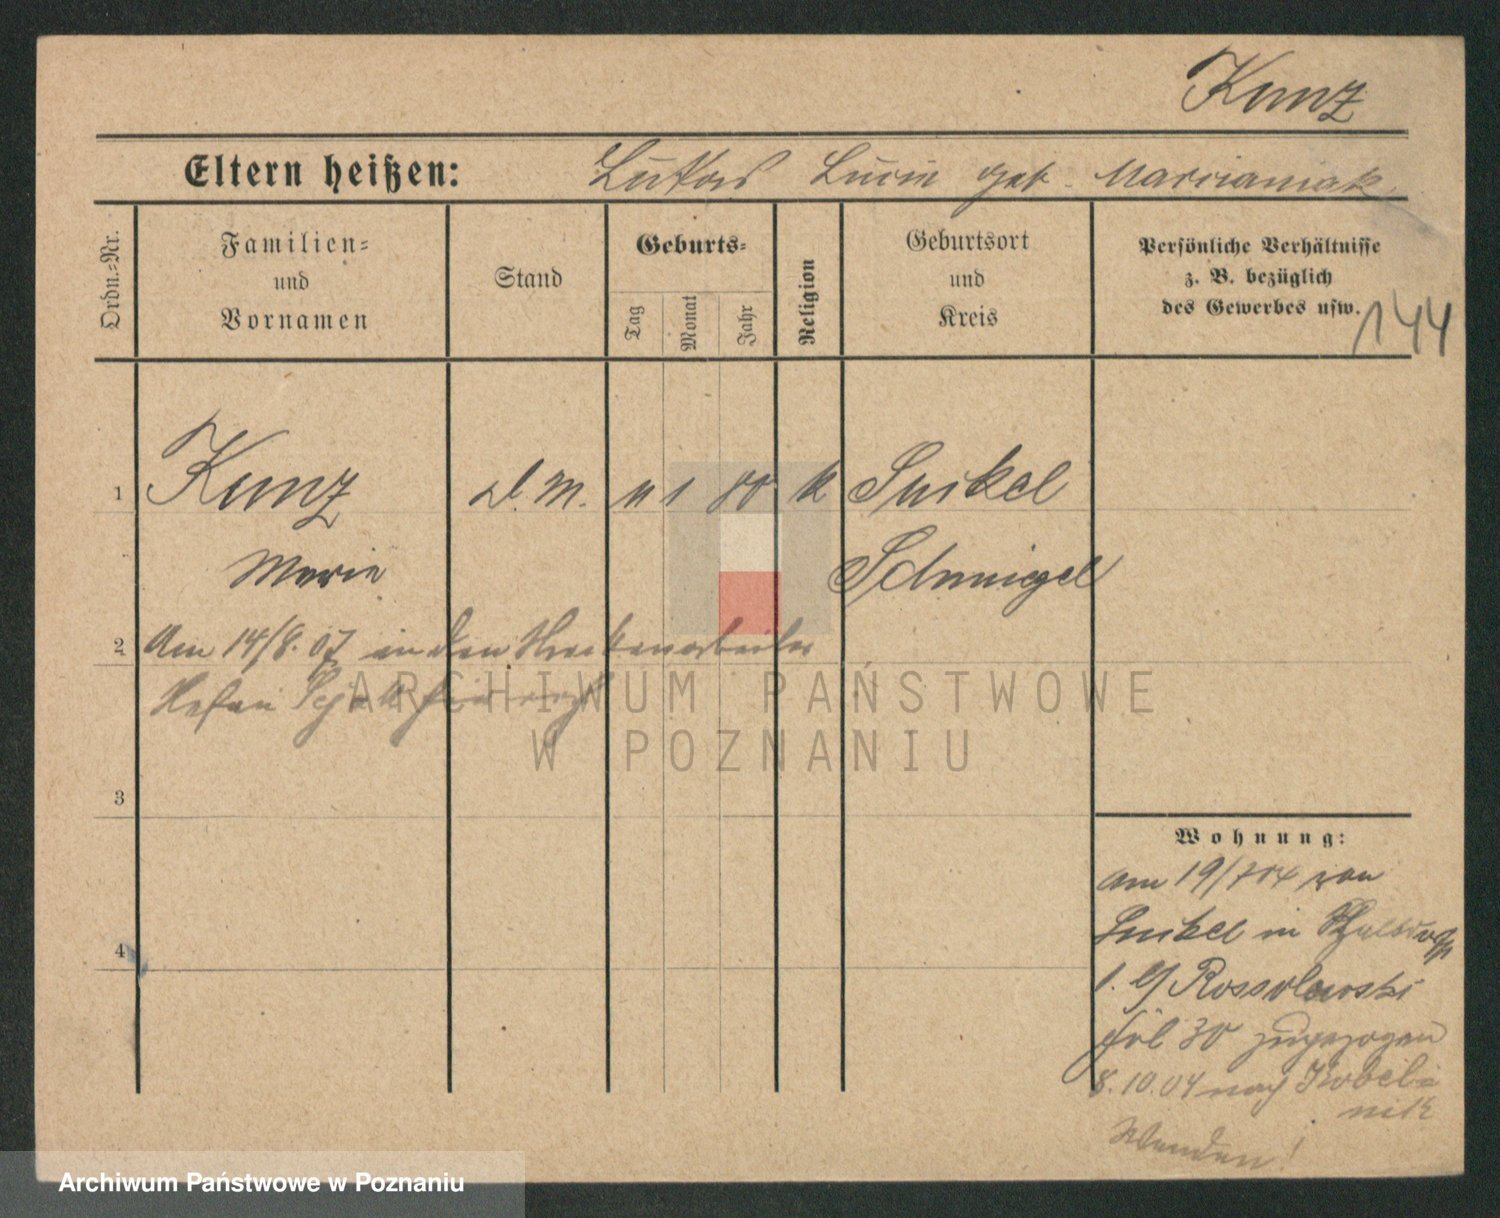 Kunz
Eltern heißen: Lukas Lucie geb. Marcianiak
Ordn.=Nr.
Familien=
und
Vornamen
Stand
Geburts=
Tag
Monat
Jahr
Religion
Geburtsort
und
Kreis
Persönliche Verhältnisse
z. B. bezüglich
des Gewerbes usw.
144
1 Kunz D. M. 11 1 80 k
Marie Schmiegel
2 Am 14/8. 07 in den
3
4
Wohnung:
am 19/7 04 von
in
Rossolowski
30 zugezogen
8.10.04 nach Kobel=
nik
Wenden!
ARCHIWUM PAŃSTWOWE
W POZNANIU
Archiwum Państwowe w Poznaniu